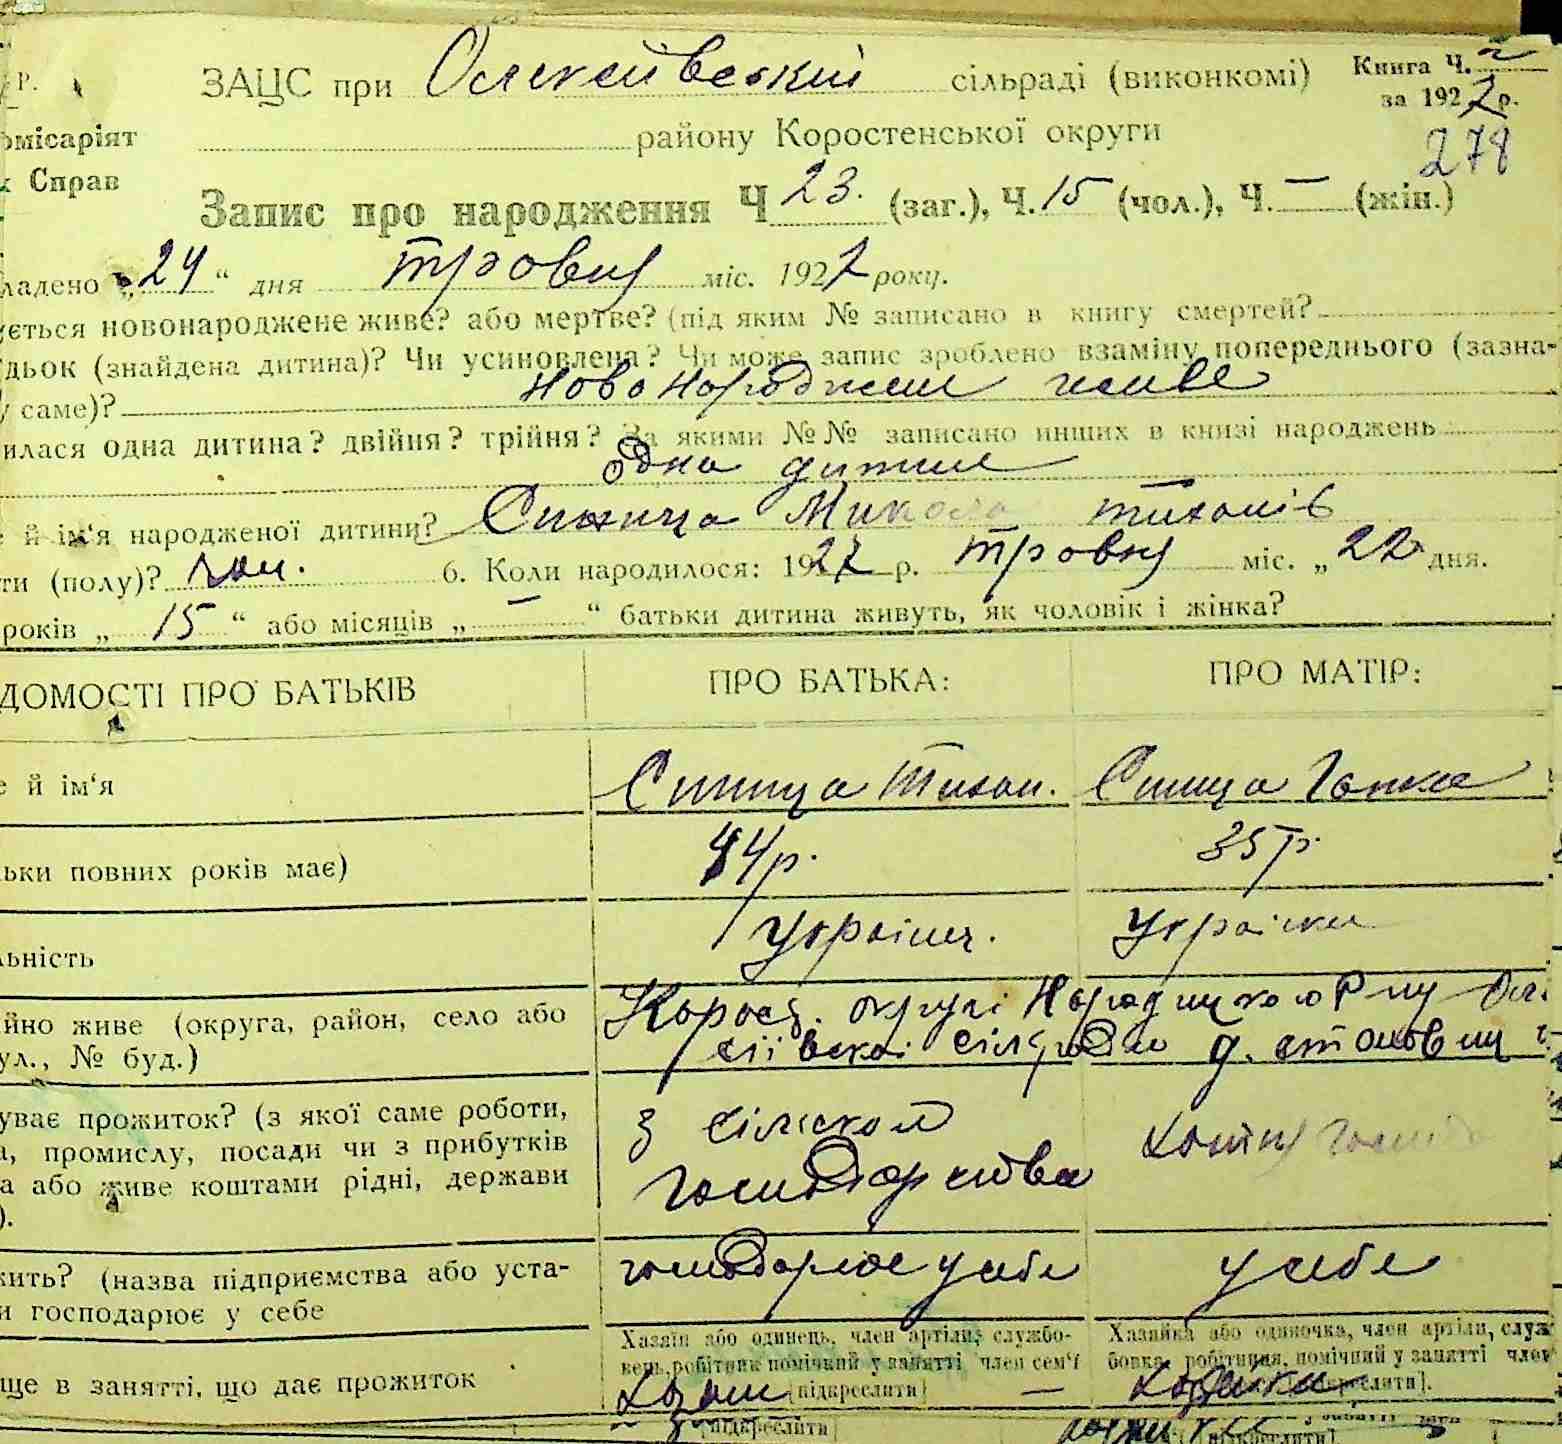 Р.
ЗАЦС при Олексіївській сільраді (виконкомі)
Книга Ч. 2
за 1927 р.
омісаріят
районy Коростенської округи
278
Справ
Запис про народження Ч 23. (заг.), Ч. 15 (чол.), Ч. — (жін.)
ладено „24“ дня травня міс. 1927 року.
ується новонароджене живе? або мертве? (під яким № записано в книгу смертей?
дьок (знайдена дитина)? Чи усиновлена? Чи може запис зроблено взаміну попереднього (зазна-
у саме)? Новонароджене живе
илася одна дитина? двійня? трійня? За якими №№ записано инших в книзі народжень
одна дитина
е й ім‘я народженої дитини? Синица Микола Тихонів
ти (полу)? чол. 6. Коли народилося: 1927 р. травня міс. „22 дня.
років „15“ або місяців „—“ батьки дитина живуть, як чоловік і жінка?
ДОМОСТІ ПРО БАТЬКІВ
ПРО БАТЬКА:
ПРО МАТІР:
е й ім‘я
Синица Тихон.
Синица Гапка
ьки повних років має)
44 р.
35 р.
льність
Украінец.
Украінка
ійно живе (округа, район, село або
ул., № буд.)
Корост. округі Народицкого Рну
сільради
уває прожиток? (з якої саме роботи,
а, промислу, посади чи з прибутків
а або живе коштами рідні, держави
).
з сілском
господарства
жить? (назва підприємства або уста-
и господарює у себе
господарює у себе
у себе
ще в занятті, що дає прожиток
Хазяїн або одинець, член артіли, службо-
вець, робітник помічний у занятті член сем‘ї
[підкреслити]
Хазяйка або одиночка, член артіли, служ
бовка, робітниця, помічний у занятті член
[підкреслити].
[підкреслити]